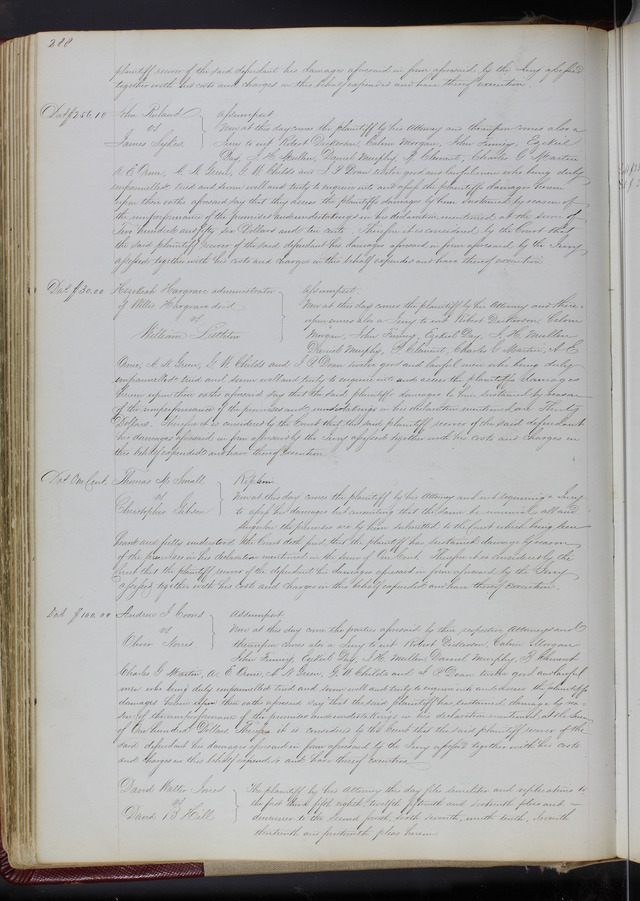 288
plaintiff recover of the said defendant his damages aforesaid in form aforesaid by the Jury assessed
together with his costs and charges in this behalf expended and have thereof execution.
Dad $256.10 John Ruland vs James Sykes } Assumpsit
Now at this day comes the plaintiff by his Attorney and thereupon comes also a
Jury to wit Robert Dickerson, Calvin Morgan, John Finney, Ezekiel
Day, J. H. Mullen, Daniel Murphy, P. Clement, Charles G Martin
A. E Orme, A. N. Green, G. W Childs and J. P Dean twelve good and lawful men who being duly
empannelled tried and sworn well and truly to enquire into and assess the plaintiffs damages herein
upon their oaths aforesaid say that they assess the plaintiffs damages by him sustained by reason of
the nonperformance of the promises and undertakings in his declaration mentioned at the sum of
two hundred and fifty six Dollars and ten cents. Therefore it is considered by the Court that
the said plaintiff recover of the said defendant his damages aforesaid in form aforesaid by the Jury
assessed together with his costs and charges in this behalf expended and have thereof execution
Dad $30.00 Hezekiah Hargrave administrator of Willis Hargrave decd vs William Littleton } Assumpsit
Now at this day comes the plaintiff by his Attorney and there-
upon comes also a Jury to wit Robert Dickerson, Calvin
Morgan, John Finney, Ezekiel Day, J. H. Mullen
Daniel Murphy, P Clement, Charles G Martin, A. E
Orme, A. N Green, G. W Childs and J P Dean twelve good and lawful men who being duly
empannelled tried and sworn well and truly to enquire into and assess the plaintiffs damages
herein upon their oaths aforesaid say that the said plaintiffs damages by him sustained by reason
of the nonperformance of the promises and undertakings in his declaration mentioned are Thirty
Dollars. Therefore it is considered by the Court that the said plaintiff recover of the said defendant
his damages aforesaid in form aforesaid by the Jury assessed together with his costs and charges in
this behalf expended and have thereof execution
Dad One Cent Thomas M. Small vs Christopher } 
Now at this day comes the plaintiff by his Attorney and not requiring a Jury
to assess his damages but consenting that the same be all and
singular the premises are by him submitted to the Court which being seen
and fully understood the Court doth find that the plaintiff has sustained damage by reason
of the premises in his declaration mentioned in the sum of One Cent. Therefore it is considered by the
Court that the plaintiff recover of the defendant his damages aforesaid in form aforesaid by the Jury
assessed together with his costs and charges in this behalf expended and have thereof execution.
Dad $100.00 Andrew J. vs Oliver } Assumpsit
Now at this day came the parties aforesaid by their respective Attorneys and
thereupon comes also a Jury to wit Robert Dickerson, Calvin Morgan
John Finney, Ezekiel Day, J. H. Mullen, Daniel Murphy, P Clement
Charles G Martin, A. E Orme, A. N Green, G. W Childs and J. P Dean twelve good and lawful
men who being duly empannelled tried and sworn well and truly to enquire into and assess the plaintiffs
damages herein upon their oaths aforesaid say that the said plaintiff has sustained damage by rea-
son of the nonperformance of the promises and undertakings in his declaration mentioned at the sum
of One hundred Dollars Therefore it is considered by the Court that the said plaintiff recover of the
said defendant his damages aforesaid in form aforesaid by the Jury assessed together with his costs
and charges in this behalf expended and have thereof execution
David Walter Jones vs David B Hill } The plaintiff by his Attorney this day files similiter and replications to
the first third fifth eighth twelfth fifteenth and sixteenth pleas and
demurrers to the second fourth, sixth seventh, ninth tenth, eleventh
thirteenth and fourteenth pleas herein